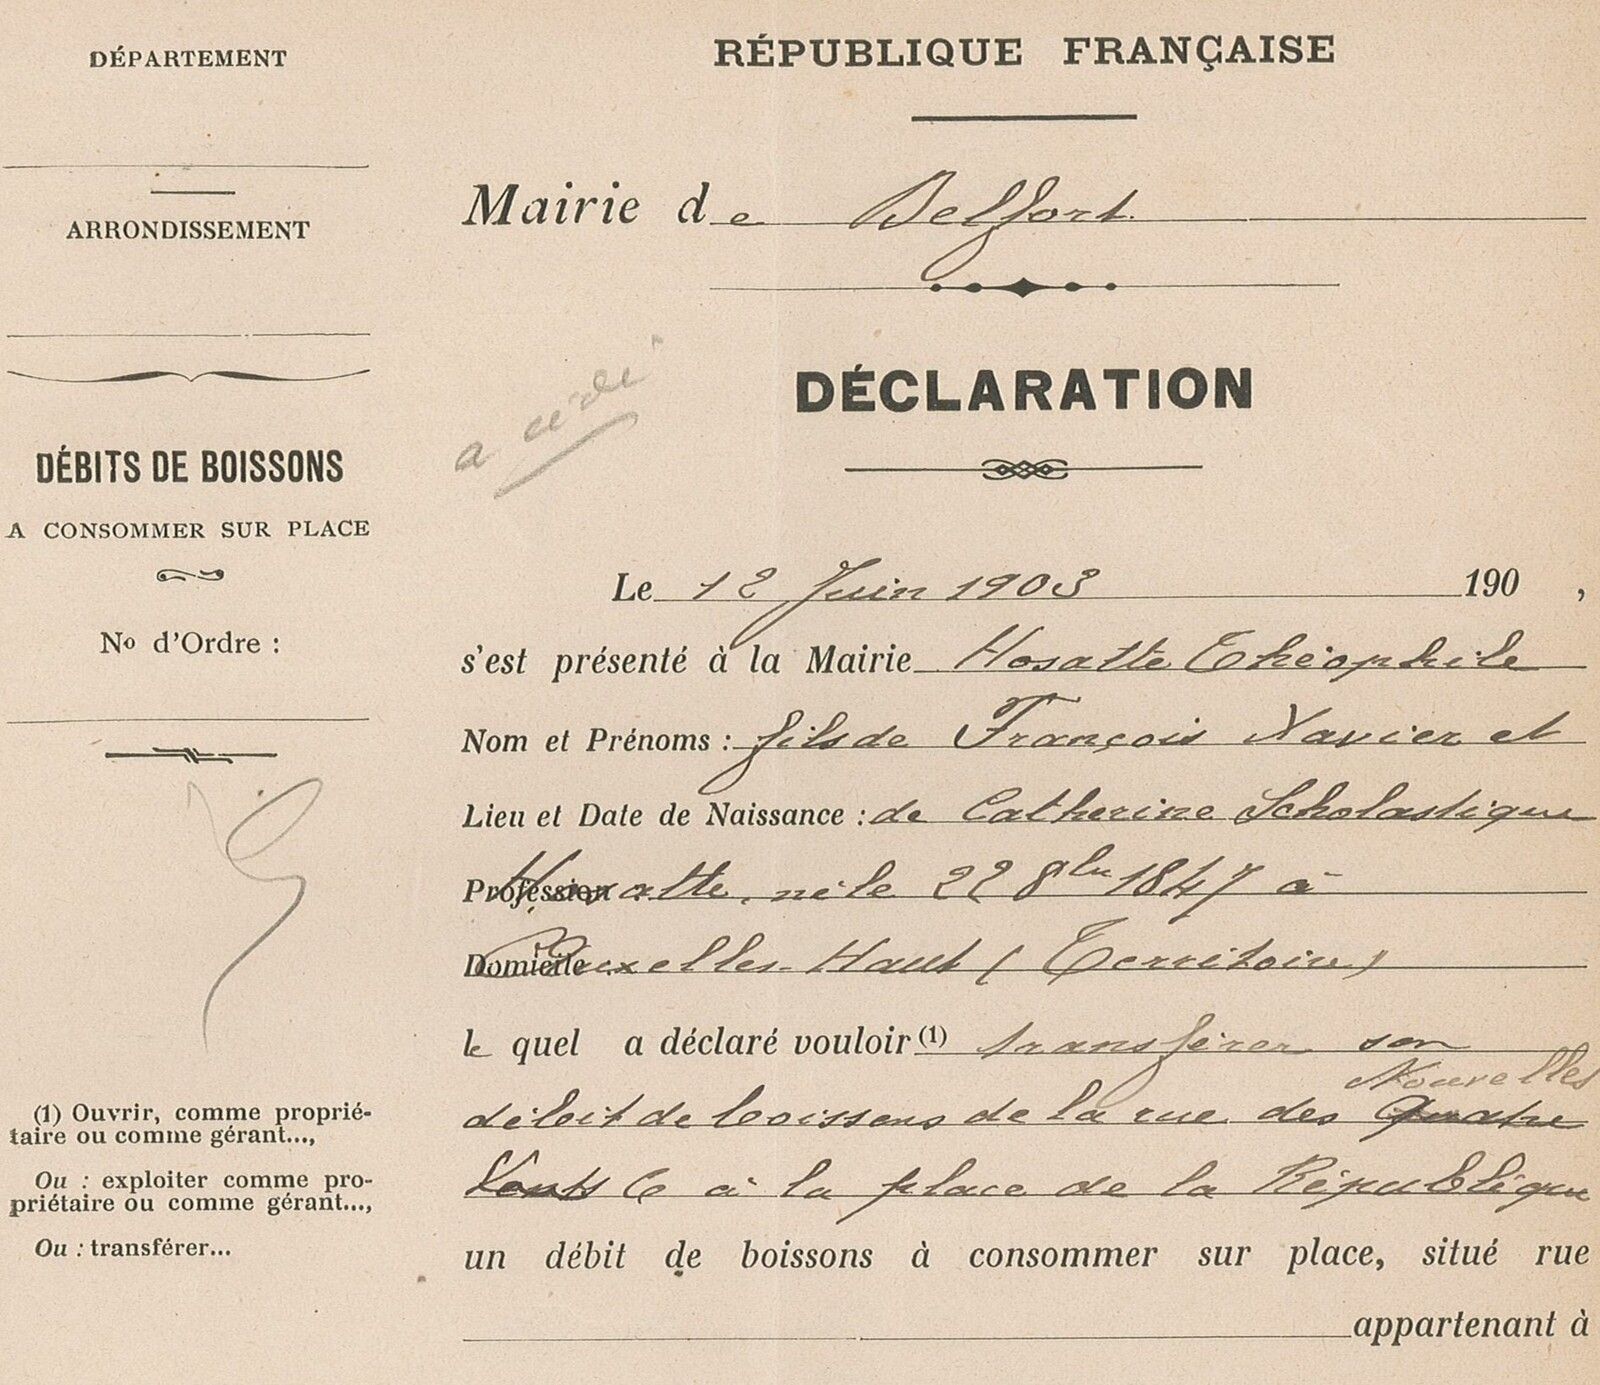 DÉPARTEMENT
ARRONDISSEMENT
DÉBITS DE BOISSONS
A CONSOMMER SUR PLACE
No d'Ordre :
(1) Ouvrir, comme proprié-
taire ou comme gérant...,
Ou : exploiter comme pro-
priétaire ou comme gérant...,
Ou : transférer...
RÉPUBLIQUE FRANÇAISE
Mairie de Belfort
a cédé
DÉCLARATION
Le 12 Juin 1903 190 ,
s'est présenté à la Mairie Hosatte Théophile
Nom et Prénoms : fils de François Xavier et
Lieu et Date de Naissance : de Catherine Scholastique
Profession Hosatte, né le 22 8bre 1847 à
Domicile Haut (Territoire)
le quel a déclaré vouloir (1) transférer son
Nouvelles
débit de boissons de la rue des Quatre
Vents 6 à la place de la République
un débit de boissons à consommer sur place, situé rue
appartenant à